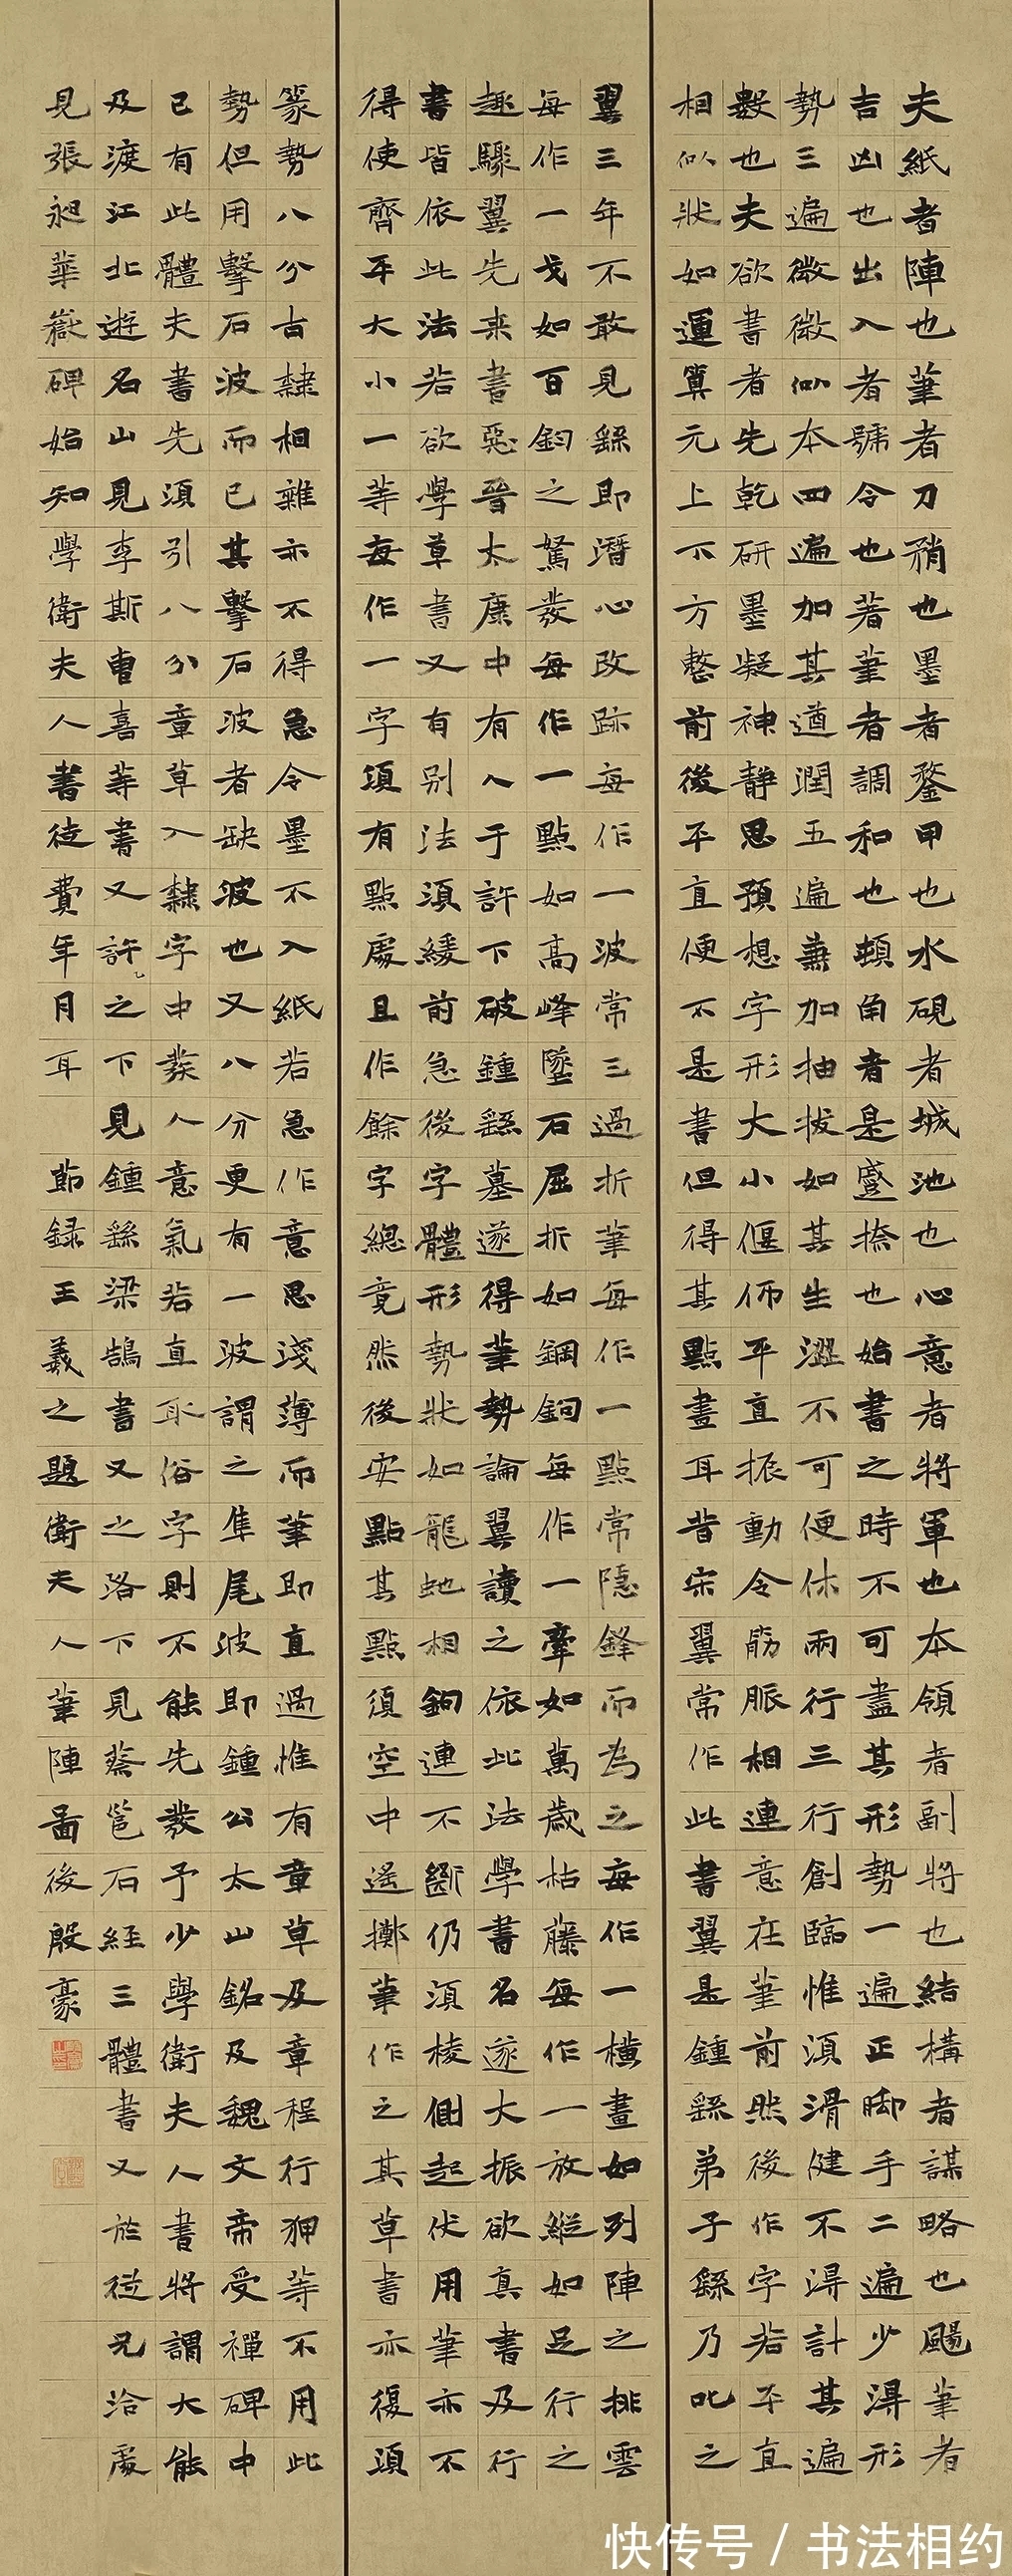 夫紙者陣也筆者刀矟也墨者鍪甲也水硯者城池也心意者將軍也本領者副將也結構者謀略也颺筆者
吉凶也出入者號令也著筆者調和也頓角者是蹙捺也始書之時不可盡其形勢一遍正脚手二遍少得形
勢三遍微微似本四遍加其遒潤五遍兼加抽拔如其生澀不可便休兩行三行創臨惟須滑健不得計其遍
數也夫欲書者先乾研墨凝神靜思預想字形大小偃仰平直振動令筋脈相連意在筆前然後作字若平直
相似狀如運算元上下方整前後平直便不是書但得其點畫耳昔宋翼常作此書翼是鍾繇弟子繇乃叱之
翼三年不敢見繇即潛心改跡每作一波常三過折筆每作一點常隱鋒而為之每作一橫畫如列陣之排雲
每作一戈如百鈞之駑發每作一點如高峰墜石屈折如鋼鉤每作一牽如萬歲枯藤每作一放縱如足行之
趣驟翼先來書惡晉太康中有人于許下破鍾繇墓遂得筆勢論翼讀之依此法學書名遂大振欲真書及行
書皆依此法若欲學草書又有別法須緩前急後字體形勢狀如龍虵相鉤連不斷仍須棱側起伏用筆亦不
得使齊平大小一等每作一字須有點處且作餘字總竟然後安點其點須空中遙擲筆作之其草書亦復須
篆勢八分古隸相雜亦不得急令墨不入紙若急作意思淺薄而筆即直過惟有章草及章程行狎等不用此
勢但用擊石波而已其擊石波者缺波也又八分更有一波謂之隼尾波即鍾公太山銘及魏文帝受禪碑中
已有此體夫書先須引八分章草入隸字中發人意氣若直取俗字則不能先發予少學衛夫人書將謂大能
及渡江北遊名山見李斯曹喜等書又許之下見鍾繇梁鵠書又之洛下見蔡邕石經三體書又於從兄洽處
見張昶華嶽碑始知學衛夫人書徒費年月耳 節録王羲之題衛夫人筆陣圖後殷豪
快传号 / 书法相约